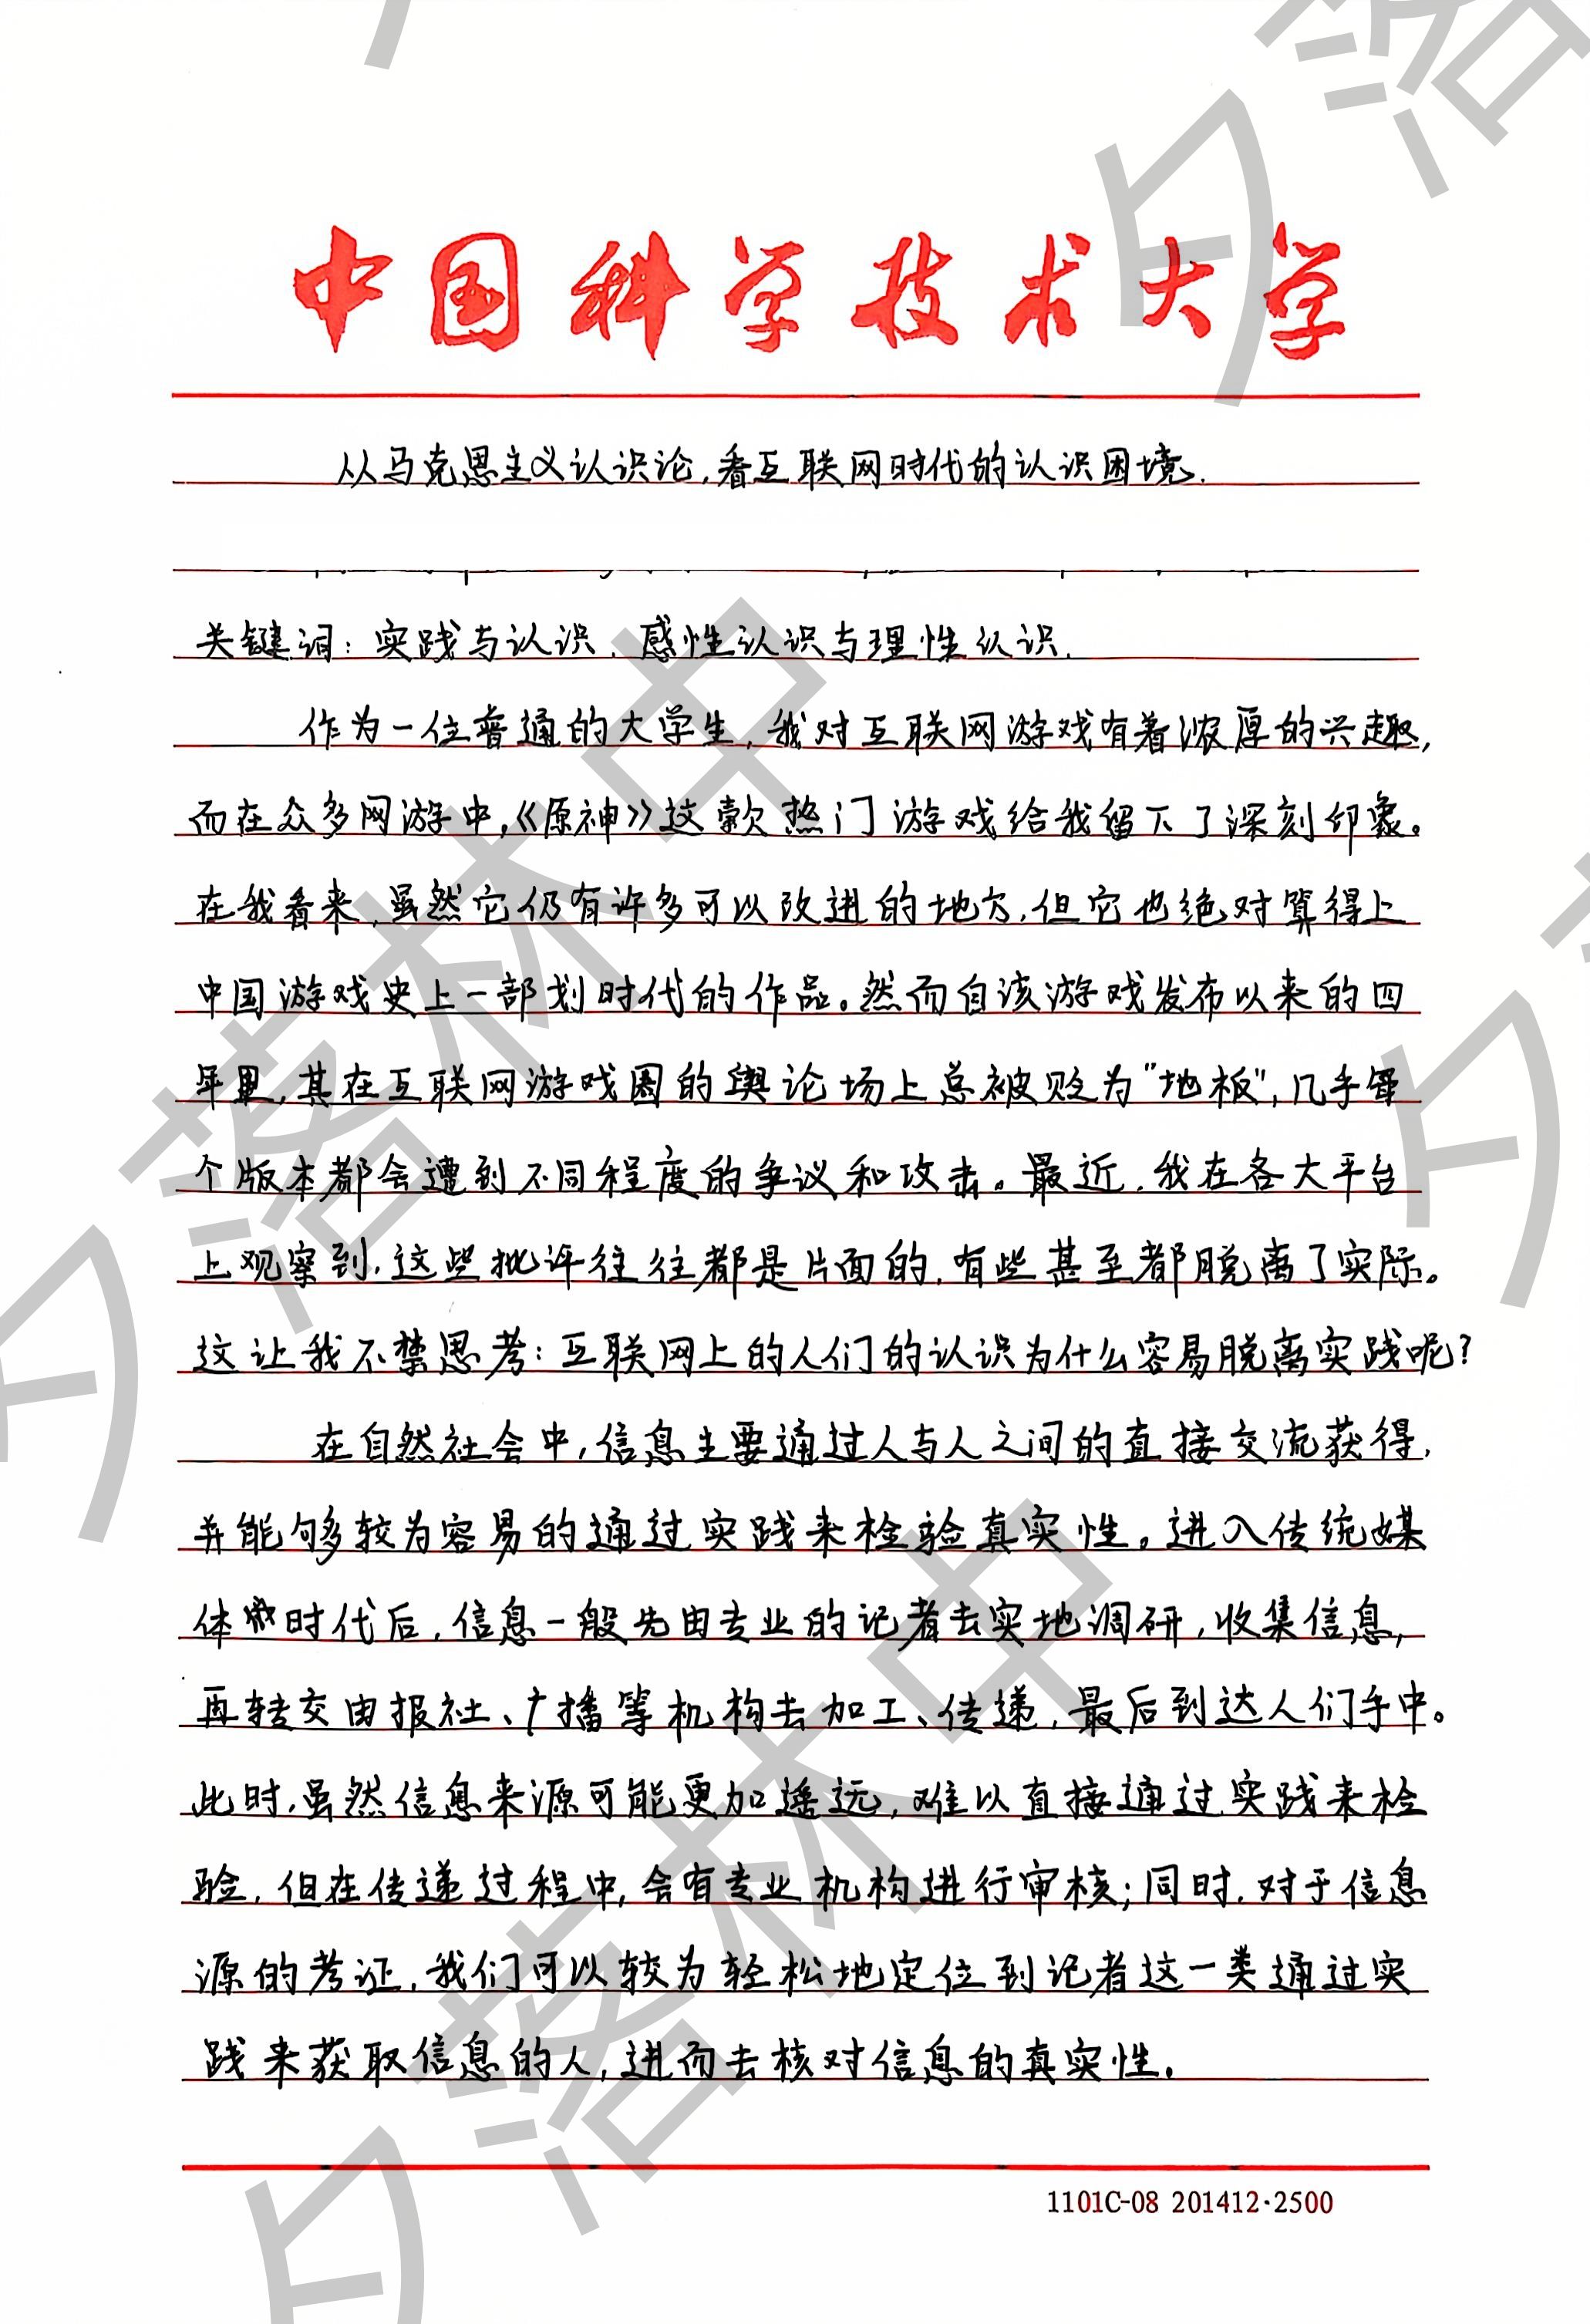 中国科学技术大学
从马克思主义认识论,看互联网时代的认识困境.
关键词:实践与认识.感性认识与理性认识.
作为一位普通的大学生,我对互联网游戏有着浓厚的兴趣,
而在众多网游中,《原神》这款热门游戏给我留下了深刻印象。
在我看来,虽然它仍有许多可以改进的地方,但它也绝对算得上
中国游戏史上一部划时代的作品。然而自该游戏发布以来的四
年里,其在互联网游戏圈的舆论场上总被贬为"地板",几乎每
个版本都会遭到不同程度的争议和攻击。最近,我在各大平台
上观察到,这些批评往往都是片面的,有些甚至都脱离了实际。
这让我不禁思考:互联网上的人们的认识为什么容易脱离实践呢?
在自然社会中,信息主要通过人与人之间的直接交流获得,
并能够较为容易的通过实践来检验真实性。进入传统媒
体时代后,信息一般先由专业的记者去实地调研,收集信息,
再转交由报社、广播等机构去加工、传递,最后到达人们手中。
此时,虽然信息来源可能更加遥远,难以直接通过实践来检
验,但在传递过程中,会有专业机构进行审核;同时,对于信息
源的考证,我们可以较为轻松地定位到记者这一类通过实
践来获取信息的人,进而去核对信息的真实性。
1101C-08 201412·2500
夕落林中
夕落林中